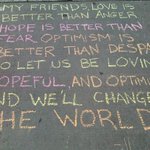 MY FRIENDS, LOVE IS
BETTER THAN ANGER
HOPE IS BETTER THAN
FEAR OPTIMISM IS
BETTER THAN DESPA
SO LET US BE LOVIN
HOPEFUL, AND OPTIM
AND WE'LL CHANGE
THE WORLD